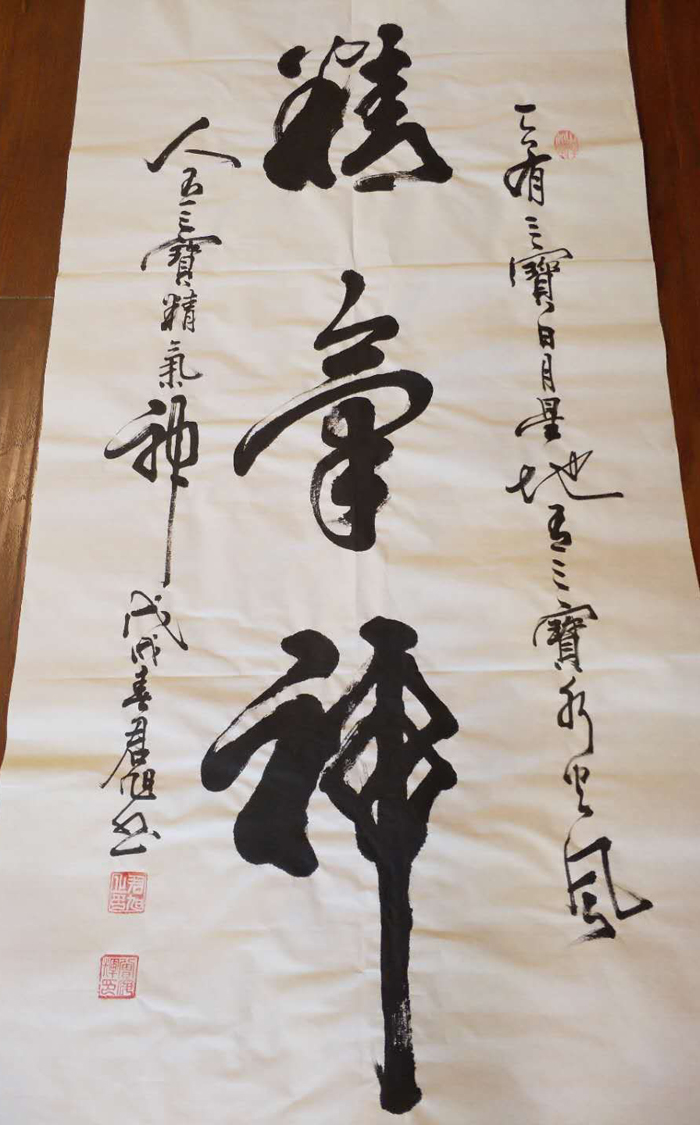 天有三寶日月星地有三寶水火風
精氣神
人有三寶精氣神
戊戌春君旭書